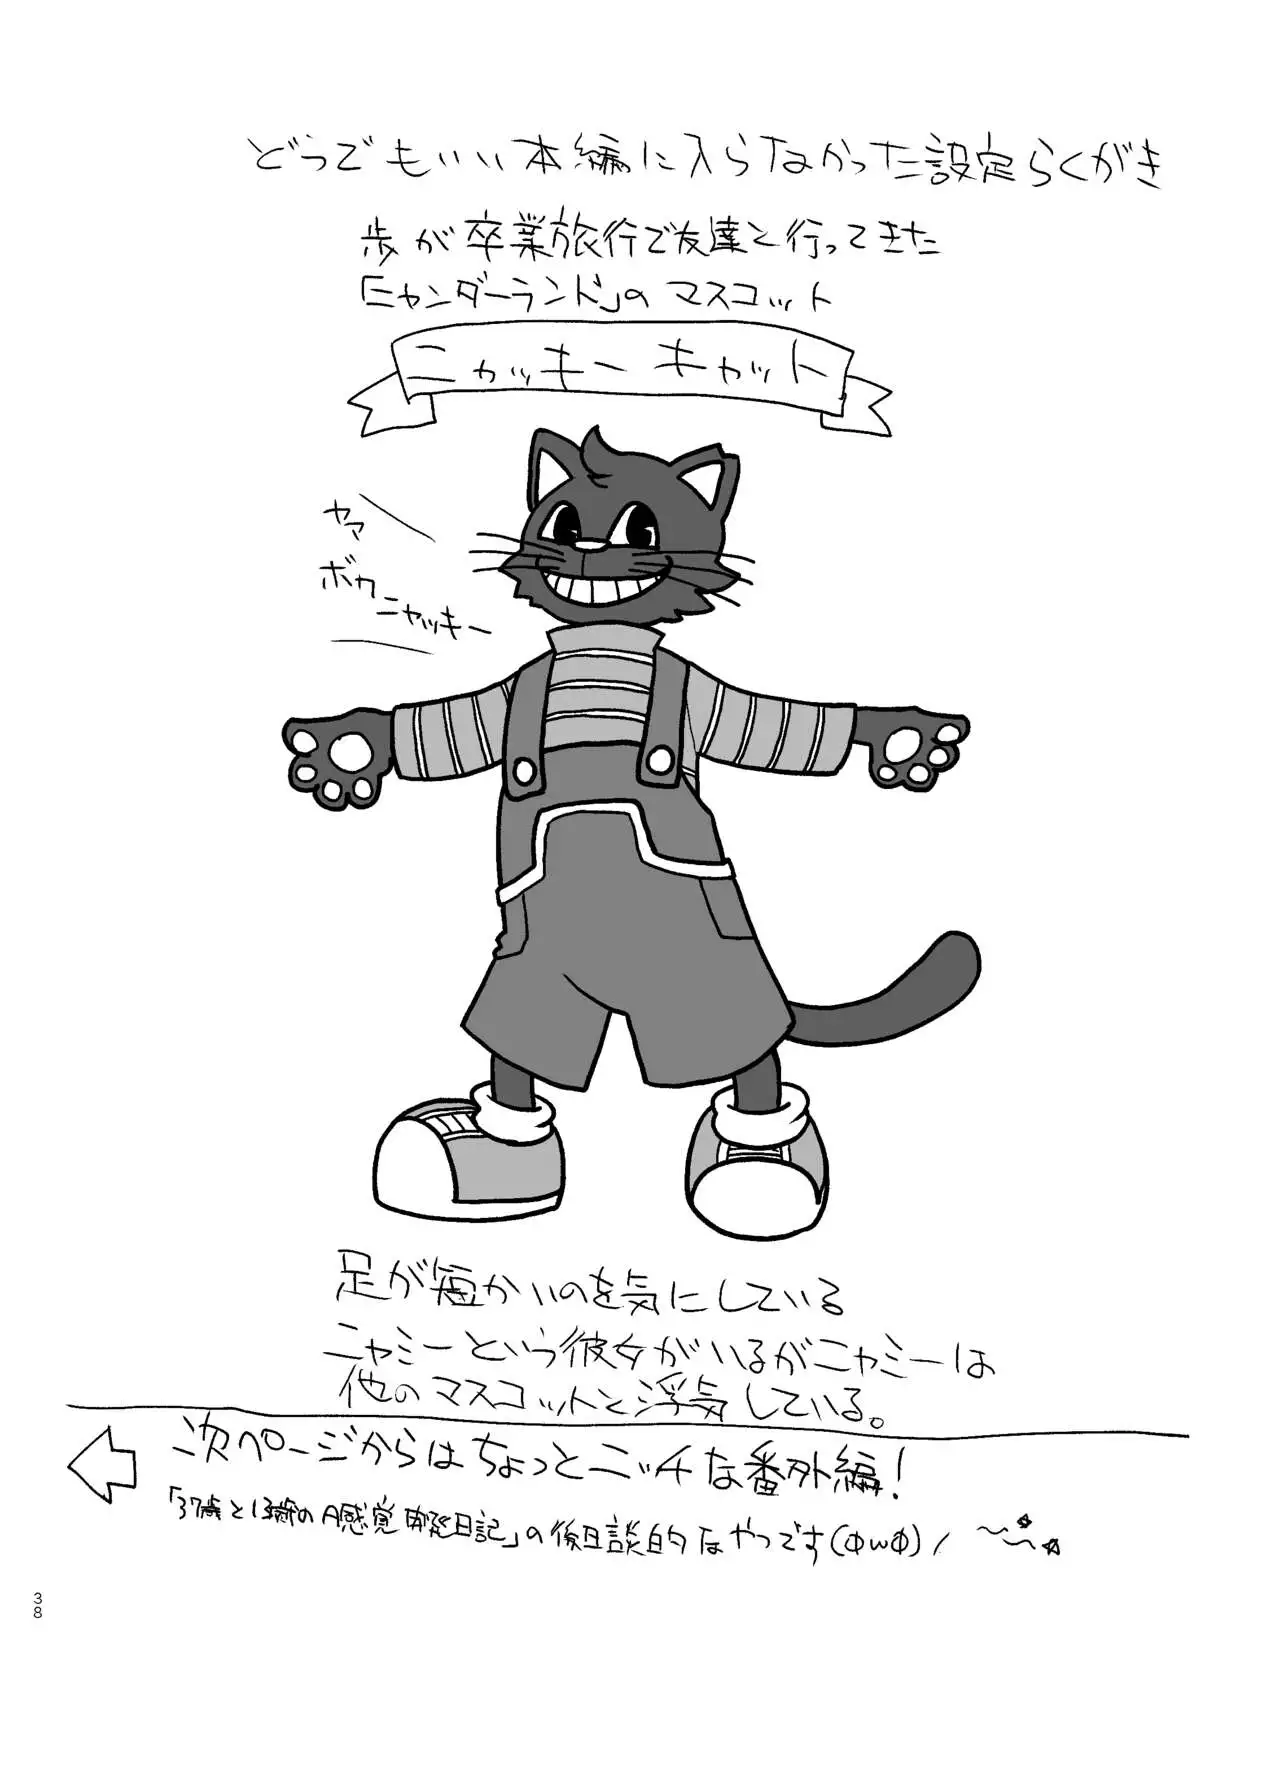 どうでもいい本編に入らなかった設定らくがき
歩が卒業旅行で友達と行ってきた
「ニャンダーランド」のマスコット
ニャッキーキャット
ヤア
ボク
ニャッキー
足が短かいのを気にしている
ニャミーという彼女がいるがニャミーは
他のマスコットと浮気している。
次ページからはちょっとニッチな番外編!
38